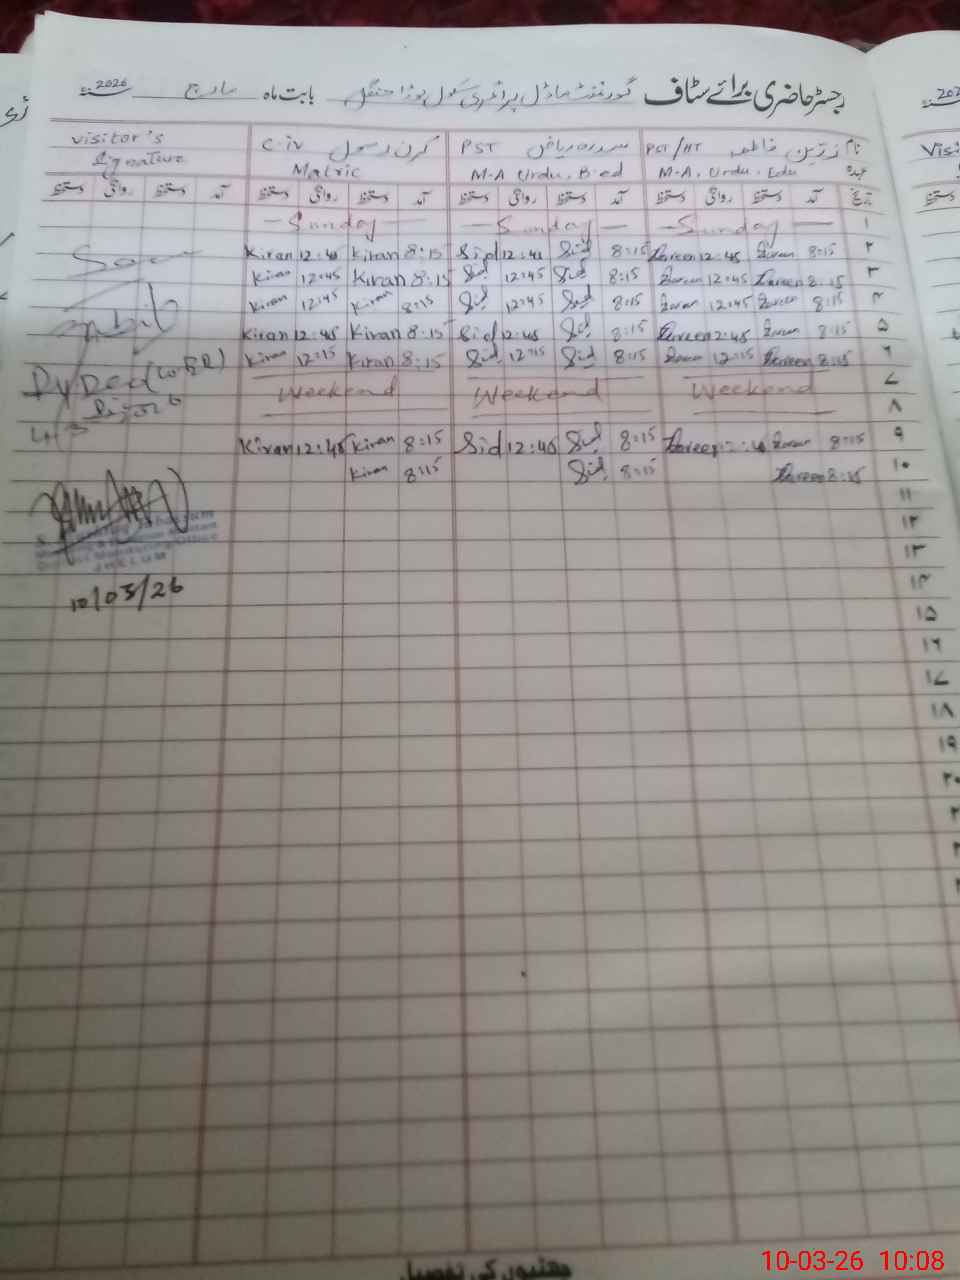 رجسٹر حاضری برائے سٹاف گورنمنٹ ماڈل پرائمری سکول بابت ماہ مارچ 2026
نام زرین فاطمہ PST/HT سدرہ ریاض PST کرن رسول C-iv visitor's
عہدہ M-A, Urdu, Edu M-A Urdu, B-ed Matric Signature
تاریخ آمد دستخط روانگی دستخط آمد دستخط روانگی دستخط آمد دستخط روانگی دستخط آمد دستخط روانگی دستخط
۱ Sunday Sunday Sunday
۲ 8:15 Zareen 12:45 Zareen 8:15 Sid 12:45 Sid 8:15 Kiran 12:45 Kiran
۳ 8:15 Zareen 12:45 Zareen 8:15 Sid 12:45 Sid 8:15 Kiran 12:45 Kiran
۴ 8:15 Zareen 12:45 Zareen 8:15 Sid 12:45 Sid 8:15 Kiran 12:45 Kiran
۵ 8:15 Zareen 12:45 Zareen 8:15 Sid 12:45 Sid 8:15 Kiran 12:45 Kiran
۶ 8:15 Zareen 12:15 Zareen 8:15 Sid 12:15 Sid 8:15 Kiran 12:15 Kiran
۷ Weekend Weekend Weekend
۸
۹ 8:15 Zareen 12:45 Zareen 8:15 Sid 12:45 Sid 8:15 Kiran 12:45 Kiran
۱۰ 8:15 Zareen 8:15 Sid 8:15 Kiran
۱۱
۱۲
۱۳
JHELUM
۱۴
10/03/26
۱۵
۱۶
۱۷
۱۸
۱۹
۲۰
چھٹیوں کی تفصیل
10-03-26 10:08